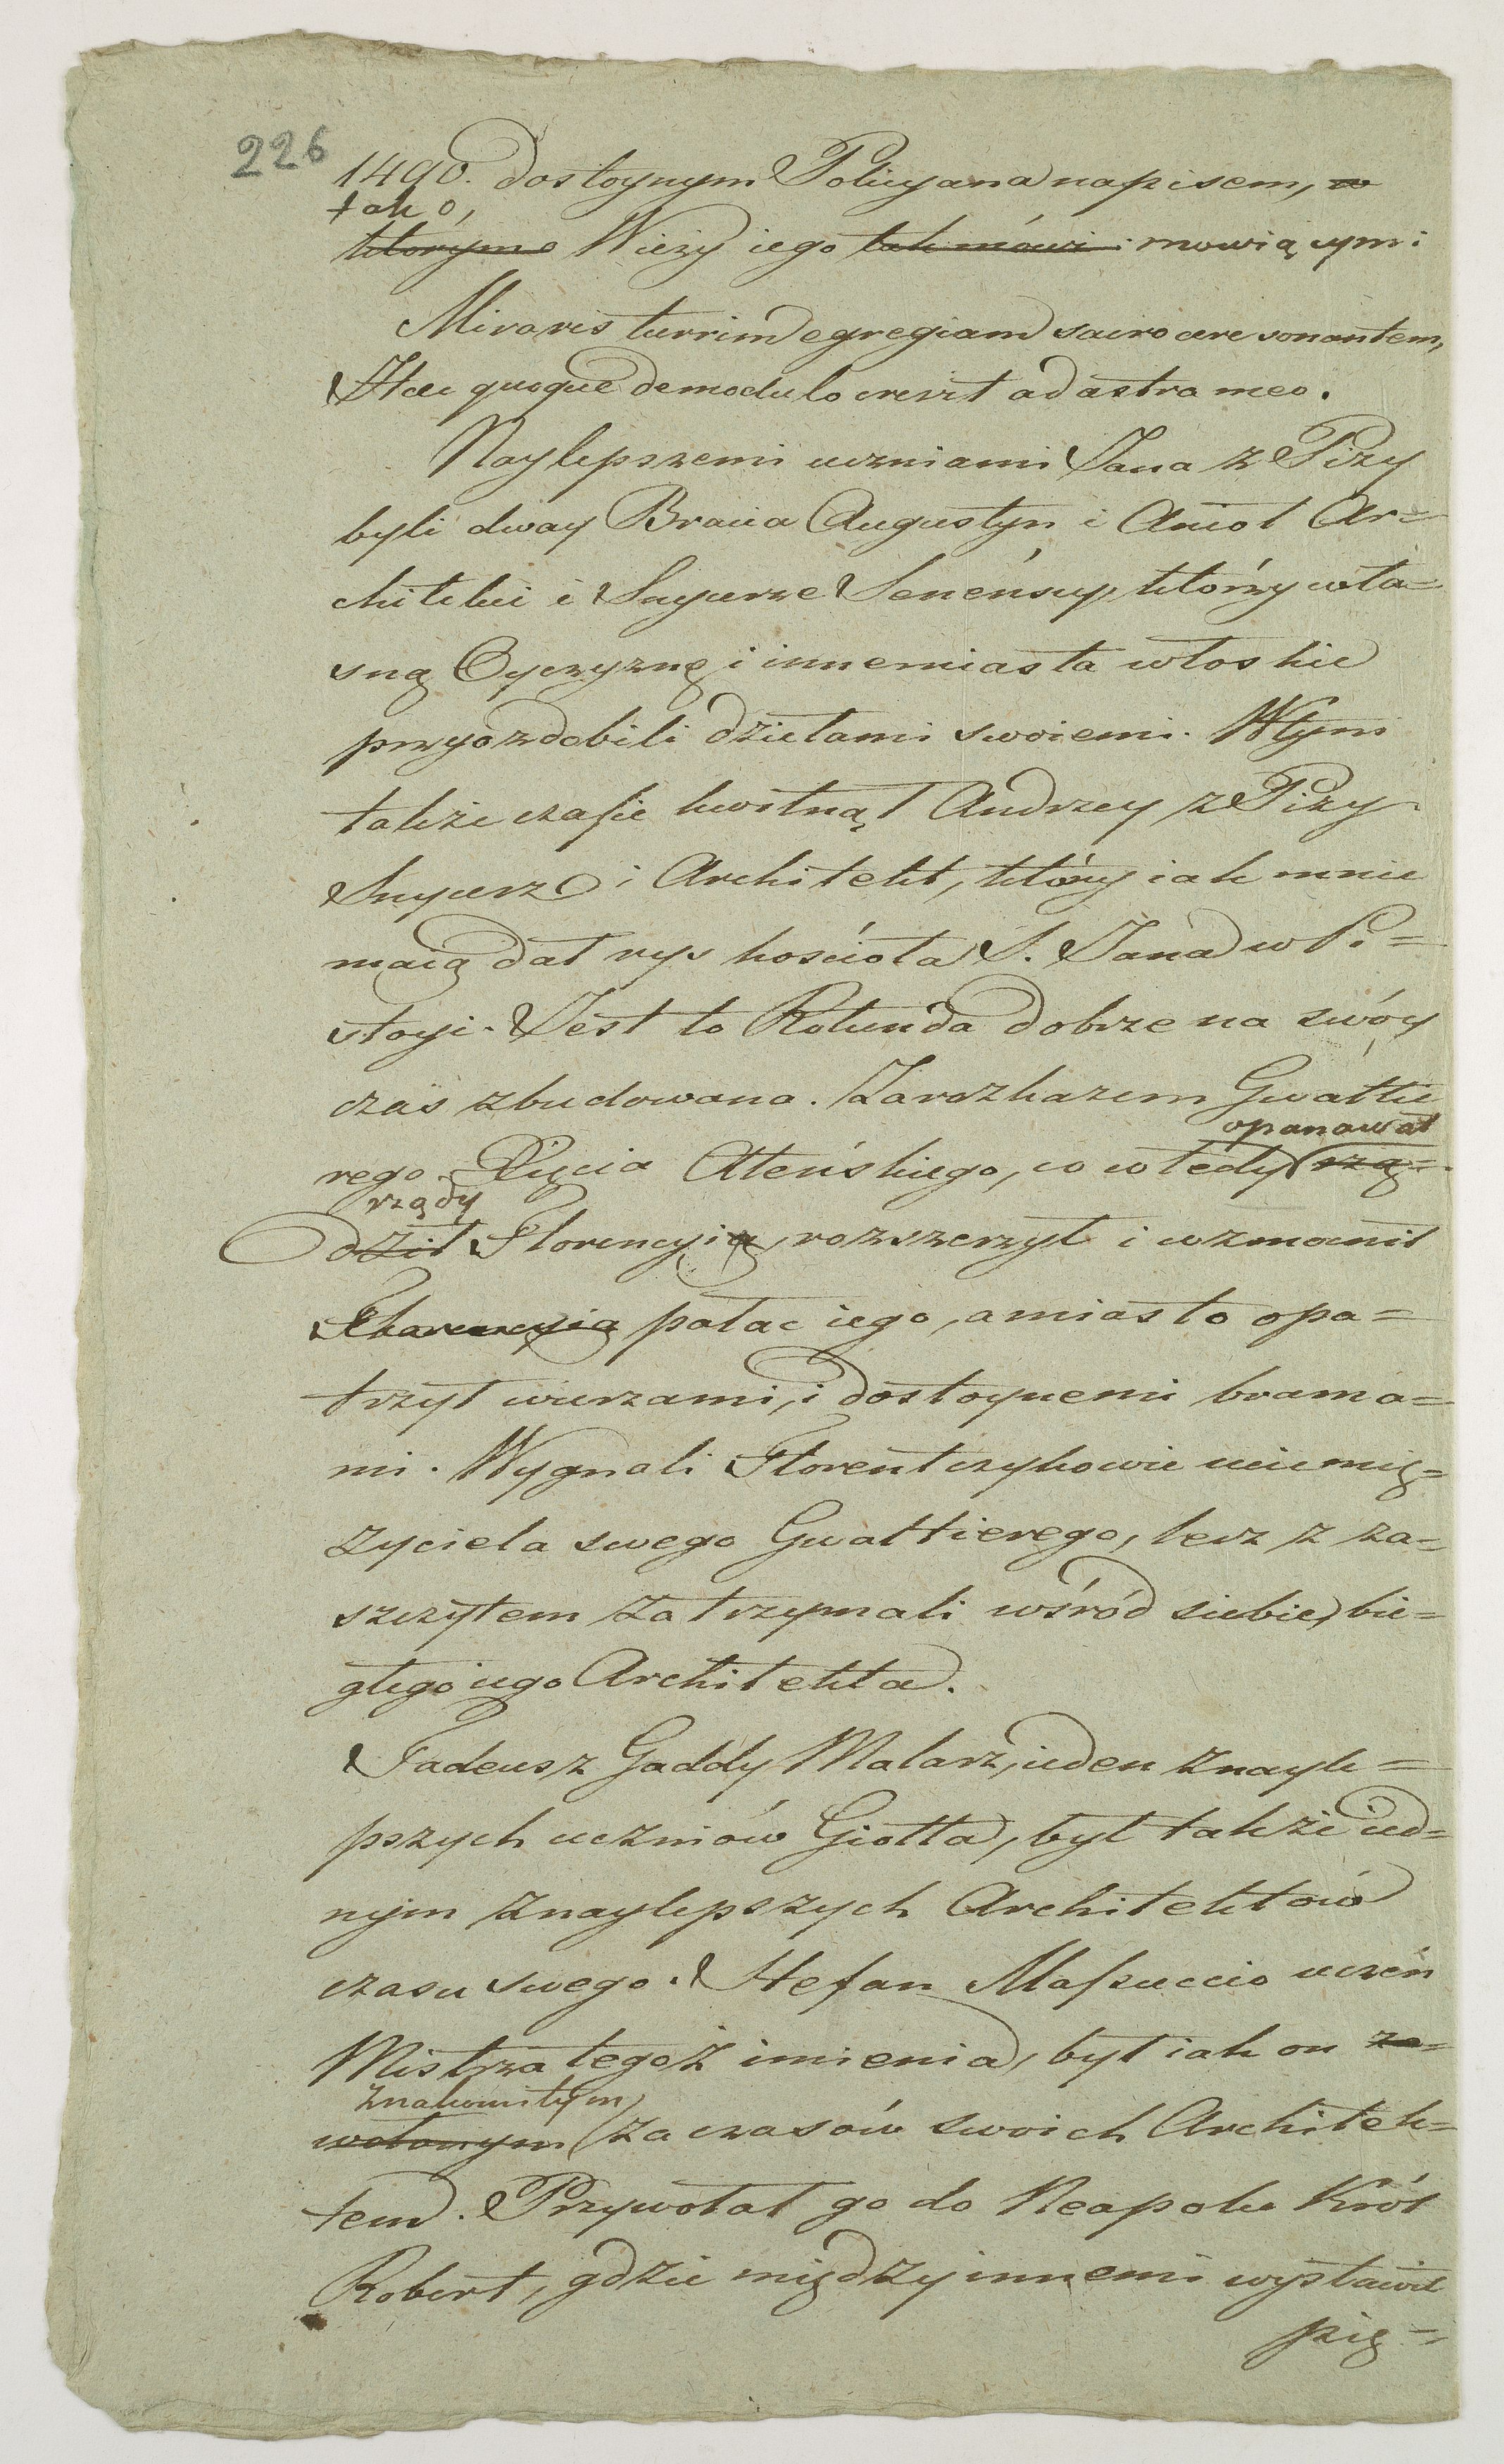 226
1490. dostoynym Policyana napisem, w
tak o,
którym o Wieży iego tak mówi: mowiącym:
Miraris turrim egregiam sacro aere sonantem,
Haec quoque de modulo crevit ad astra meo.
Naylepszemi uczniami Jana z Pizy
byli dway Bracia Augustyn i Anioł Ar=
chitekci i Snycerze Seneńscy, którzy wła=
sną Oyczyznę i inne miasta włoskie
przyozdobili dziełami swoiemi. W tym
także czasie kwitnął Andrzey z Pizy
Snycerz i Architekt, który iak mnie
maią dał rys kościoła S. Jana w Pi=
stoyi. Jest to Rotunda dobrze na swóy
czas zbudowana. Za rozkazem Gwaltie
opanował
rego Xięcia Ateńskiego, co wtedy rzą=
rządy
dził Florencyią, rozszerzył i wzmocnił
Florencyia pałac iego, a miasto opa=
trzył wieżami, i dostoynemi brama=
mi. Wygnali Florentczykowie uciemię=
życiela swego Gwaltierego, lecz z za=
szczytem zatrzymali wśród siebie, bie=
głego iego Architekta.
Tadeusz Gaddy Malarz, ieden z nayle=
pszych uczniów Giotta, był także ied=
nym z naylepszych Architektów
czasu swego. Stefan Massuccio uczeń
Mistrza tegoż imienia, był iak on za=
znakomitym
wołanym za czasów swoich Architek=
tem. Przywołał go do Neapolu Król
Robert, gdzie między innemi wystawił
pię=